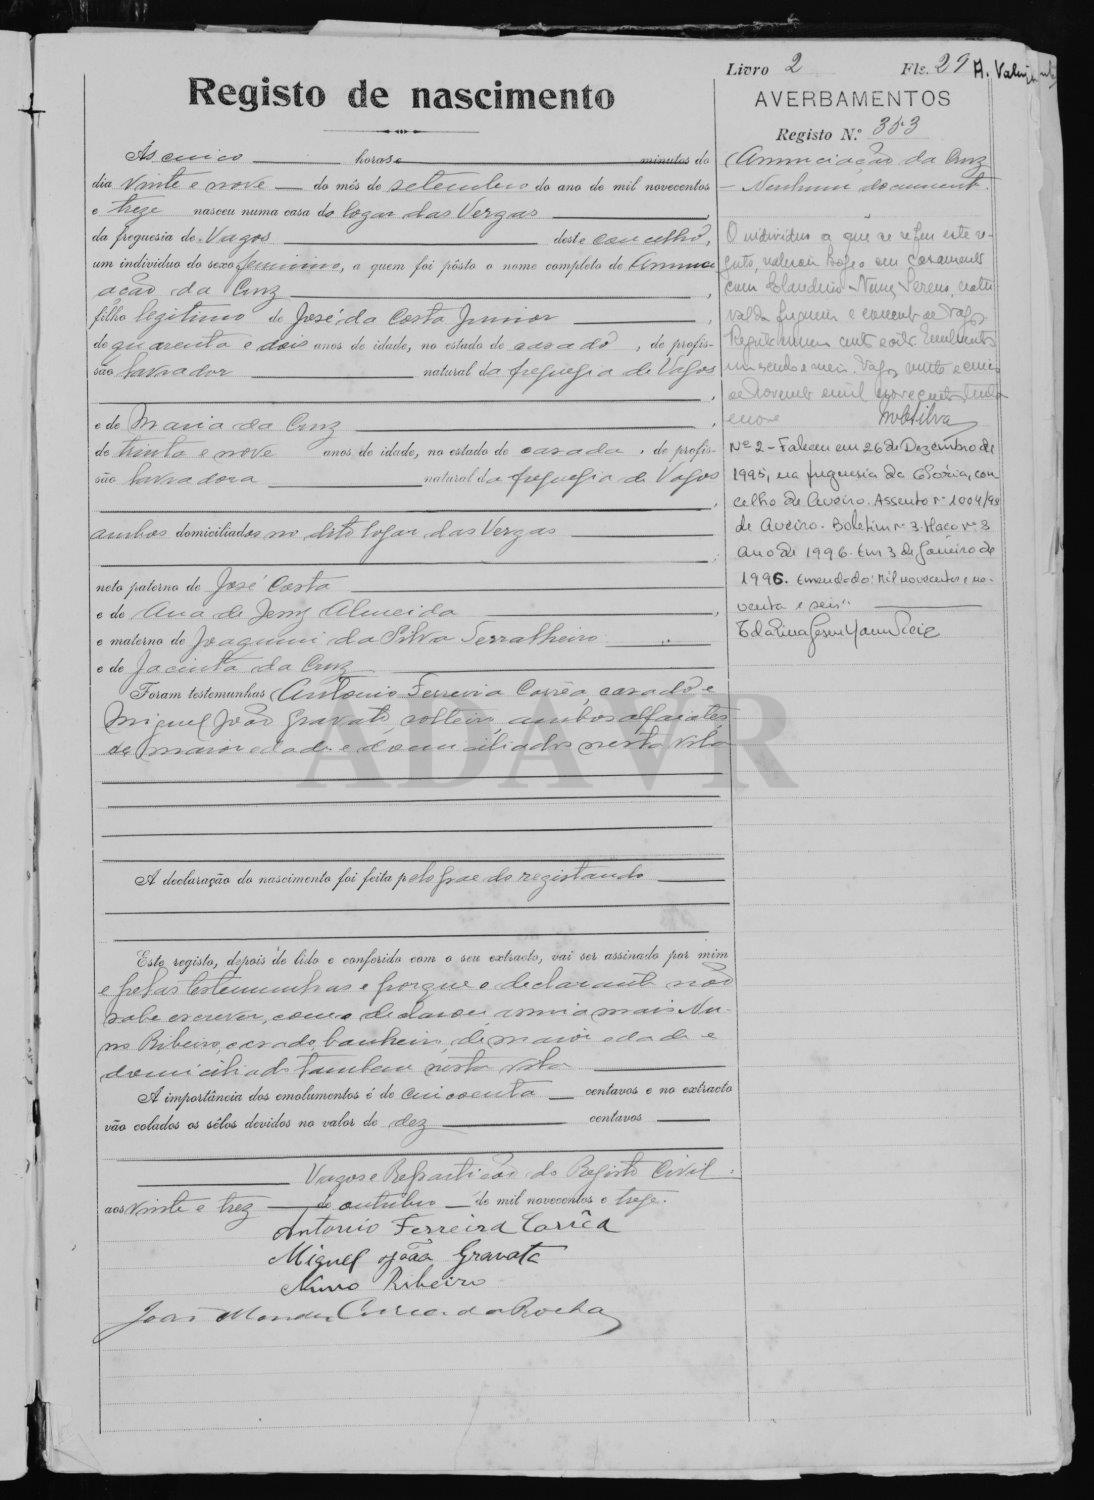 Livro 2 Fls. 29
Registo de nascimento
Ás cinco horas e minutos do
dia vinte e nove do mês de setembro do ano de mil novecentos
e treze nasceu numa casa do logar das Vergas,
da freguesia de Vagos deste concelho,
um individuo do sexo feminino, a quem foi pôsto o nome completo de Annunci
ação da Cruz,
filho legitimo de José da Costa Junior,
de quarenta e dois anos de idade, no estado de casado, de profis-
são lavrador natural da freguezia de Vagos,
e de Maria da Cruz,
de trinta e nove anos de idade, no estado de casada, de profis-
são lavradora natural da freguezia de Vagos,
ambos domiciliados no dito logar das Vergas;
neto paterno de José Costa
e de Ana de Jesus Almeida,
e materno de Joaquim da Silva Serralheiro
e de Jacinta da Cruz
Foram testemunhas Antonio Ferreira Corrêa, casado e
Miguel João Gravato, solteiro, ambos alfaiates,
de maior edade e domiciliados nesta vila
A declaração do nascimento foi feita pelo pae do registando
Este registo, depois de lido e conferido com o seu extracto, vai ser assinado por mim
e pelas testemunhas e porque o declarante não
sabe escrever, como declarou assina mais Nu-
no Ribeiro, casado, banheiro, de maior edade e
domiciliado tambem nesta vila
A importância dos emolumentos é de cincoenta centavos e no extracto
vão colados os sêlos devidos no valor de dez centavos
Vagos e Repartição do Registo Civil,
aos vinte e trez de outubro de mil novecentos e treze.
Antonio Ferreira Corrêa
Miguel João Gravato
Nuno Ribeiro
João Mendes Correia da Rocha
AVERBAMENTOS
Registo N.º 353
Annunciação da Cruz
Nenhum documento.
O individuo a que se refere este re-
gisto, casamento
com Nunes
val da freguesia e concelho de Vagos
Vagos, vinte e cinco
de Novembro de mil novecentos trinta
e nove
Nº 2 - Faleceu em 26 de Dezembro de
1995, na freguesia da Glória, con-
celho de Aveiro. Assento nº 1004/95
de Aveiro. Boletim nº 3. Maço nº 3
Ano de 1996. Em 3 de Janeiro de
1996. Emendado: Mil novecentos e no-
venta e seis".
ADAVR